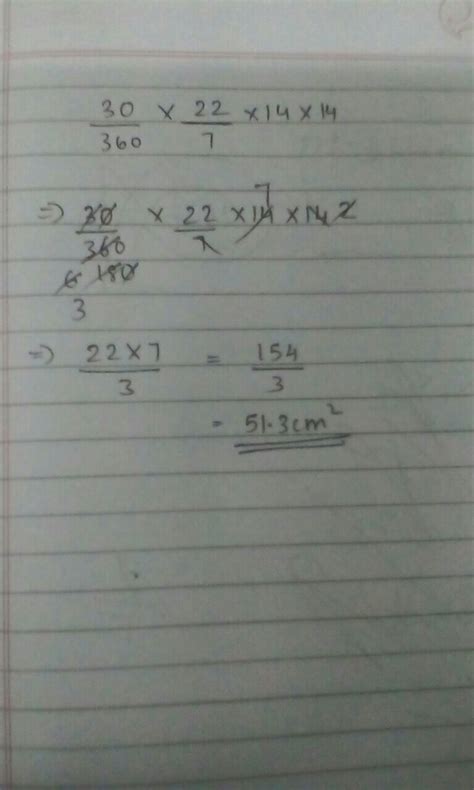 30/360 × 22/7 × 14 × 14
⇒ 30/360 × 22/7 × 14 × 14 2
7
6 180
3
⇒ 22 × 7/3 = 154/3
= 51.3cm²